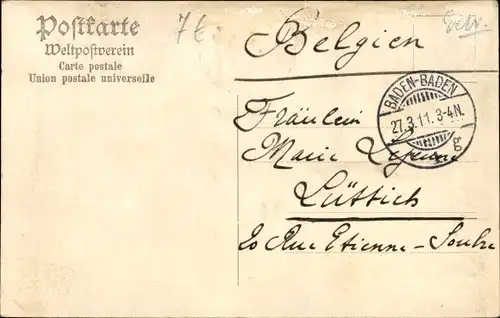 Postkarte
Weltpostverein
Carte postale
Union postale universelle
7€
Belgien
BADEN-BADEN
27.3.11.3-4N.
Fräulein
Marie Lejeune
Lüttich
20 Rue Etienne-Soubre